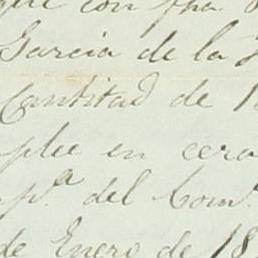 que con fha
Garcia de la
Cantidad de 1
plee en cera
p.ª del Com.
de Enero de 18